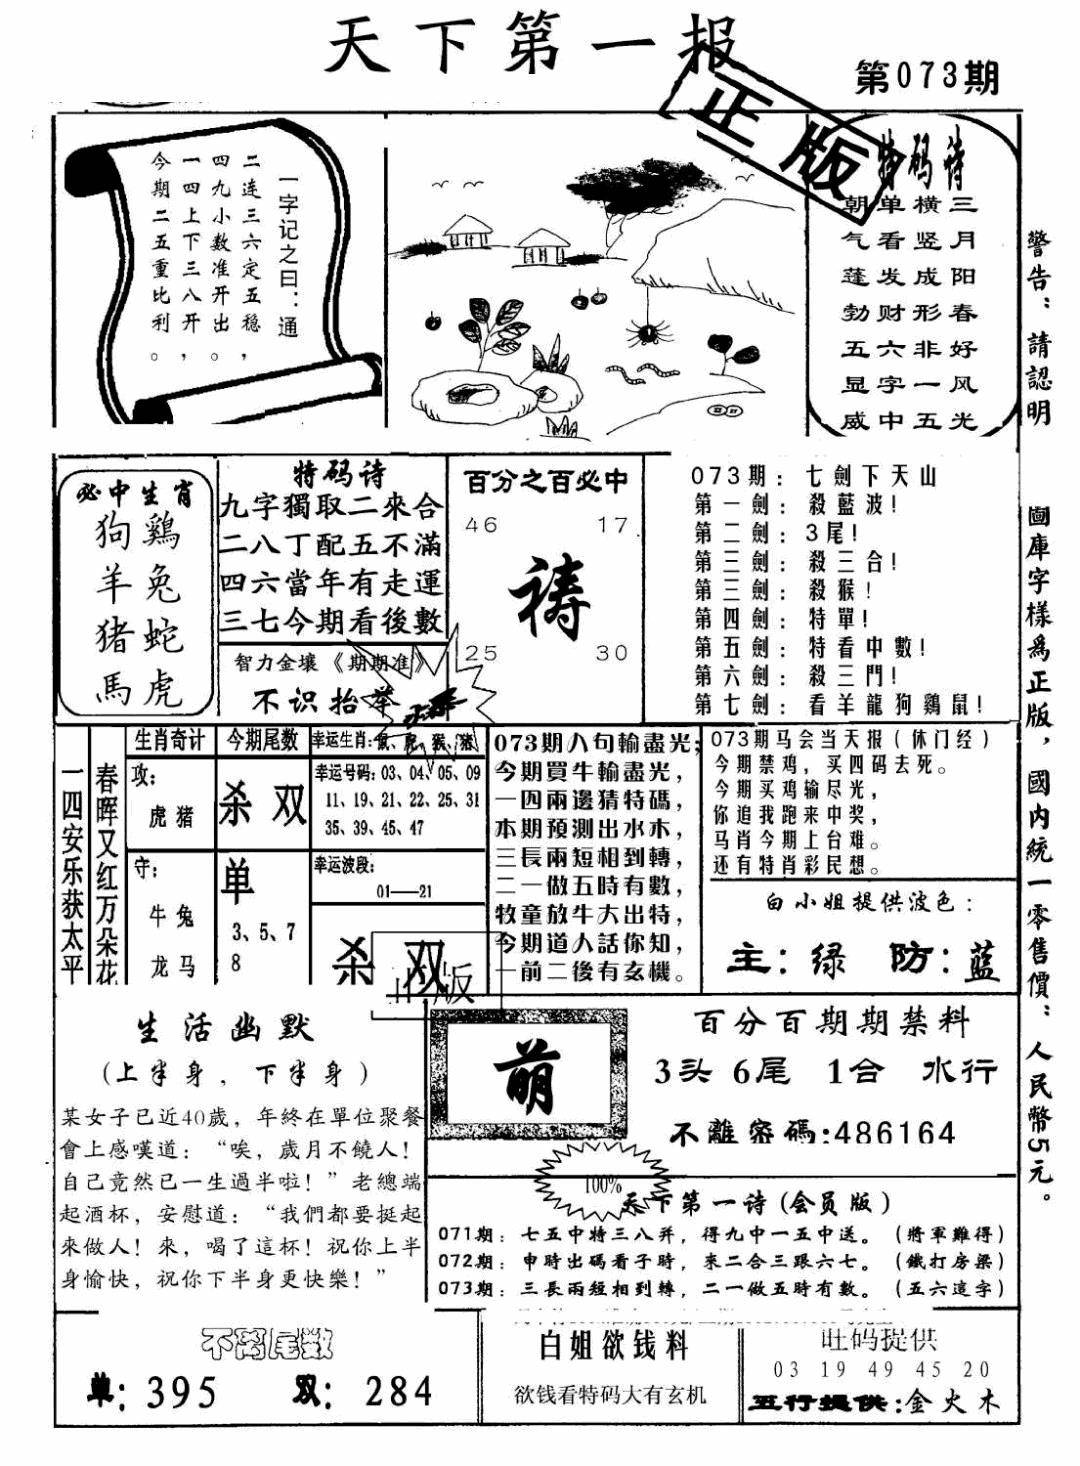 天下第一报
第073期
正版
一字记之曰：通
二连三六定五稳，
四九小数准开出。
一四上下三八开，
今期二五重比利。
特码诗
三月阳春好风光
横竖成形非一五
单看发财六字中
朝气蓬勃五显威
警告：請認明
圖庫字樣爲正版，國内統一零售價：人民幣5元。
必中生肖
狗鷄
羊兔
猪蛇
馬虎
特码诗
九字獨取二來合
二八丁配五不滿
四六當年有走運
三七今期看後數
智力金壤《期期准》
不识抬举
百分之百必中
46 17
祷
25 30
073期：七劍下天山
第一劍：殺藍波！
第二劍：3尾！
第三劍：殺三合！
第三劍：殺猴！
第四劍：特單！
第五劍：特看中數！
第六劍：殺三門！
第七劍：看羊龍狗鷄鼠！
春晖又红万朵花
一四安乐获太平
生肖奇计
攻：
虎猪
守：
牛兔
龙马
今期尾数
杀双
单
3、5、7
8
幸运生肖：鼠、虎、猴、猪
幸运号码：03、04、05、09
11、19、21、22、25、31
35、39、45、47
幸运波段：
01——21
杀双
正版
073期八句輸盡光；
今期買牛輸盡光，
一四兩邊猜特碼，
本期預測出水木，
三長兩短相到轉，
二一做五時有數，
牧童放牛大出特，
今期道人話你知，
一前二後有玄機。
073期马会当天报（休门经）
今期禁鸡，买四码去死。
今期买鸡输尽光，
你追我跑来中奖，
马肖今期上台难。
还有特肖彩民想。
白小姐提供波色：
主：绿 防：蓝
生活幽默
(上半身，下半身)
某女子已近40歲，年終在單位聚餐
會上感嘆道：“唉，歲月不饒人！
自己竟然已一生過半啦！”老總端
起酒杯，安慰道：“我們都要挺起
來做人！來，喝了這杯！祝你上半
身愉快，祝你下半身更快樂！”
萌
百分百期期禁料
3头 6尾 1合 水行
不離密碼:486164
100%
天下第一诗(会员版)
071期：七五中特三八并，得九中一五中送。（將軍難得）
072期：申時出碼看子時，來二合三跟六七。（鐵打房梁）
073期：三長兩短相到轉，二一做五時有數。（五六這字）
不离尾数
单：395 双：284
白姐欲钱料
欲钱看特码大有玄机
旺码提供
03 19 49 45 20
五行提供：金火木